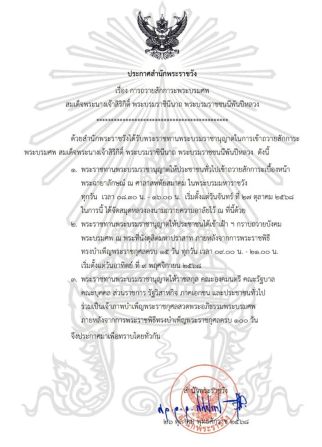 ประกาศสำนักพระราชวัง
เรื่อง การถวายสักการะพระบรมศพ
สมเด็จพระนางเจ้าสิริกิติ์ พระบรมราชินีนาถ พระบรมราชชนนีพันปีหลวง
ด้วยสำนักพระราชวังได้รับพระราชทานพระบรมราชานุญาตในการเข้าถวายสักการะ
พระบรมศพ สมเด็จพระนางเจ้าสิริกิติ์ พระบรมราชินีนาถ พระบรมราชชนนีพันปีหลวง ดังนี้
๑. พระราชทานพระบรมราชานุญาตให้ประชาชนทั่วไปเข้าถวายสักการะเบื้องหน้า
พระฉายาลักษณ์ ณ ศาลาสหทัยสมาคม ในพระบรมมหาราชวัง
ทุกวัน เวลา ๐๘.๓๐ น. - ๑๖.๐๐ น. เริ่มตั้งแต่วันจันทร์ ที่ ๒๗ ตุลาคม ๒๕๖๘
ในการนี้ ได้จัดสมุดหลวงลงนามถวายความอาลัยไว้ ณ ที่นี้ด้วย
๒. พระราชทานพระบรมราชานุญาตให้ประชาชนได้เข้าเฝ้า ฯ กราบถวายบังคม
พระบรมศพ ณ พระที่นั่งดุสิตมหาปราสาท ภายหลังจากการพระราชพิธี
ทรงบำเพ็ญพระราชกุศลครบ ๑๕ วัน ทุกวัน เวลา ๐๙.๐๐ น. - ๒๑.๐๐ น.
เริ่มตั้งแต่วันอาทิตย์ ที่ ๙ พฤศจิกายน ๒๕๖๘
๓. พระราชทานพระบรมราชานุญาตให้ราชสกุล คณะองคมนตรี คณะรัฐบาล
คณะบุคคล ส่วนราชการ รัฐวิสาหกิจ ภาคเอกชน และประชาชนทั่วไป
ร่วมเป็นเจ้าภาพบำเพ็ญพระราชกุศลสวดพระอภิธรรมพระบรมศพ
ภายหลังจากการพระราชพิธีทรงบำเพ็ญพระราชกุศลครบ ๑๐๐ วัน
จึงประกาศมาเพื่อทราบโดยทั่วกัน
สำนักพระราชวัง
๒๖ ตุลาคม พุทธศักราช ๒๕๖๘